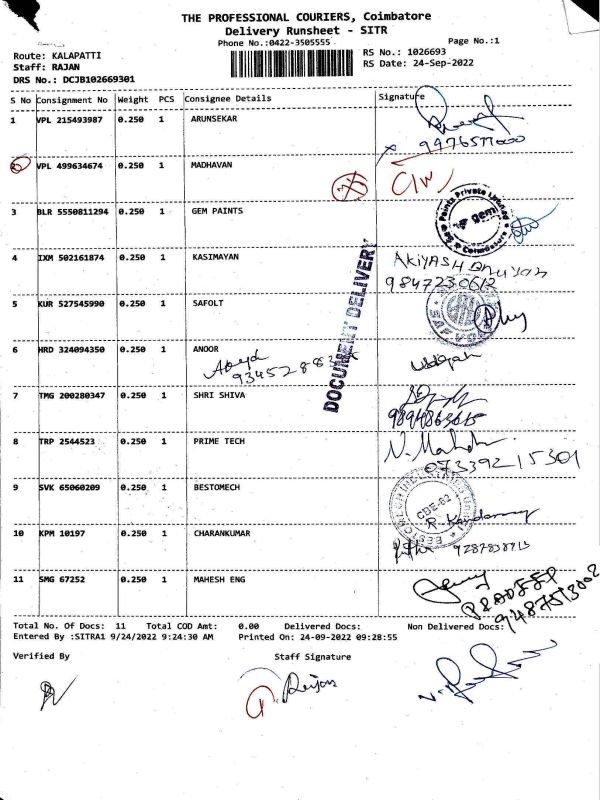 THE PROFESSIONAL COURIERS, Coimbatore
Delivery Runsheet - SITR
Phone No.:0422-3505555
Page No.:1
Route: KALAPATTI
RS No.: 1026693
Staff: RAJAN
RS Date: 24-Sep-2022
DRS No.: DCJB102669301
S No Consignment No Weight PCS Consignee Details Signature
1 VPL 215493987 0.250 1 ARUNSEKAR
2 VPL 499634674 0.250 1 MADHAVAN
3 BLR 5550811294 0.250 1 GEM PAINTS
Paints Private Limited
gem
Coimbatore
4 IXM 502161874 0.250 1 KASIMAYAN
AKIYASH
9847230612
DOCUMENT DELIVERY
5 KUR 527545990 0.250 1 SAFOLT
6 HRD 324094350 0.250 1 ANOOR
7 TMG 200280347 0.250 1 SHRI SHIVA
8 TRP 2544523 0.250 1 PRIME TECH
07339215301
9 SVK 65060209 0.250 1 BESTOMECH
CBE-62
10 KPM 10197 0.250 1 CHARANKUMAR
11 SMG 67252 0.250 1 MAHESH ENG
Total No. Of Docs: 11 Total COD Amt: 0.00 Delivered Docs: Non Delivered Docs:
Entered By :SITRA1 9/24/2022 9:24:30 AM Printed On: 24-09-2022 09:28:55
Verified By Staff Signature